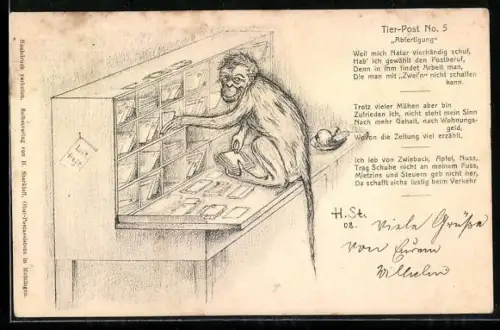 Tier-Post No. 5
„Abfertigung“
Weil mich Natur vierhändig schuf,
Hab' ich gewählt den Postberuf,
Denn in ihm findet Arbeit man,
Die man mit „Zwei'n“ nicht schaffen
kann.
Trotz vieler Mühen aber bin
Zufrieden ich, nicht steht mein Sinn
Nach mehr Gehalt, nach Wohnungs-
geld,
Wovon die Zeitung viel erzählt.
Ich leb von Zwieback, Apfel, Nuss,
Trag Schuhe nicht an meinem Fuss,
Mietzins und Steuern geb nicht her,
Da schafft sichs lustig beim Verkehr
H. St.
08.
Viele Grüße
von Eurem
Wilhelm
Nachdruck verboten. Selbstverlag von H. Starkloff, Ober-Postassistent in Meiningen.